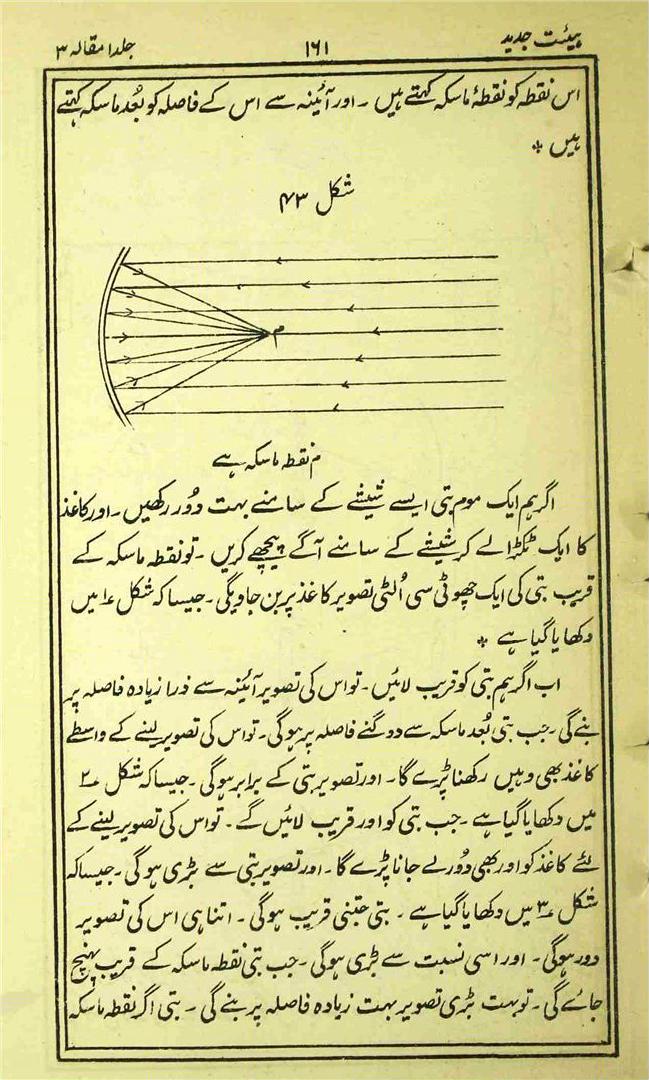 ہیئت جدید ۱۶۱ جلد ۱ مقالہ ۳
اس نقطہ کو نقطۂ ماسکہ کہتے ہیں ۔ اور آئینہ سے اس کے فاصلہ کو بُعد ماسکہ کہتے
ہیں *
شکل ۴۳
م
م نقطہ ماسکہ ہے
اگر ہم ایک موم بتی ایسے شیشے کے سامنے بہت دُور رکھیں ۔ اور کاغذ
کا ایک ٹکڑا لے کر شیشے کے سامنے آگے پیچھے کریں ۔ تو نقطہ ماسکہ کے
قریب بتی کی ایک چھوٹی سی اُلٹی تصویر کاغذ پر بن جاویگی ۔ جیسا کہ شکل ۱ میں
دکھایا گیا ہے *
اب اگر ہم بتی کو قریب لائیں ۔ تو اس کی تصویر آئینہ سے ذرا زیادہ فاصلہ پر
بنے گی ۔ جب بتی بُعد ماسکہ سے دو گنے فاصلہ پر ہوگی ۔ تو اس کی تصویر لینے کے واسطے
کاغذ بھی وہیں رکھنا پڑے گا ۔ اور تصویر بتی کے برابر ہوگی ۔ جیسا کہ شکل ۲
میں دکھایا گیا ہے ۔ جب بتی کو اور قریب لائیں گے ۔ تو اس کی تصویر لینے کے
لئے کاغذ کو اور بھی دُور لے جانا پڑے گا ۔ اور تصویر بتی سے بڑی ہوگی ۔ جیسا کہ
شکل ۳ میں دکھایا گیا ہے ۔ بتی جتنی قریب ہوگی ۔ اتنا ہی اس کی تصویر
دور ہوگی ۔ اور اسی نسبت سے بڑی ہوگی ۔ جب بتی نقطہ ماسکہ کے قریب پہنچ
جائے گی ۔ تو بہت بڑی تصویر بہت زیادہ فاصلہ پر بنے گی ۔ بتی اگر نقطہ ماسکہ